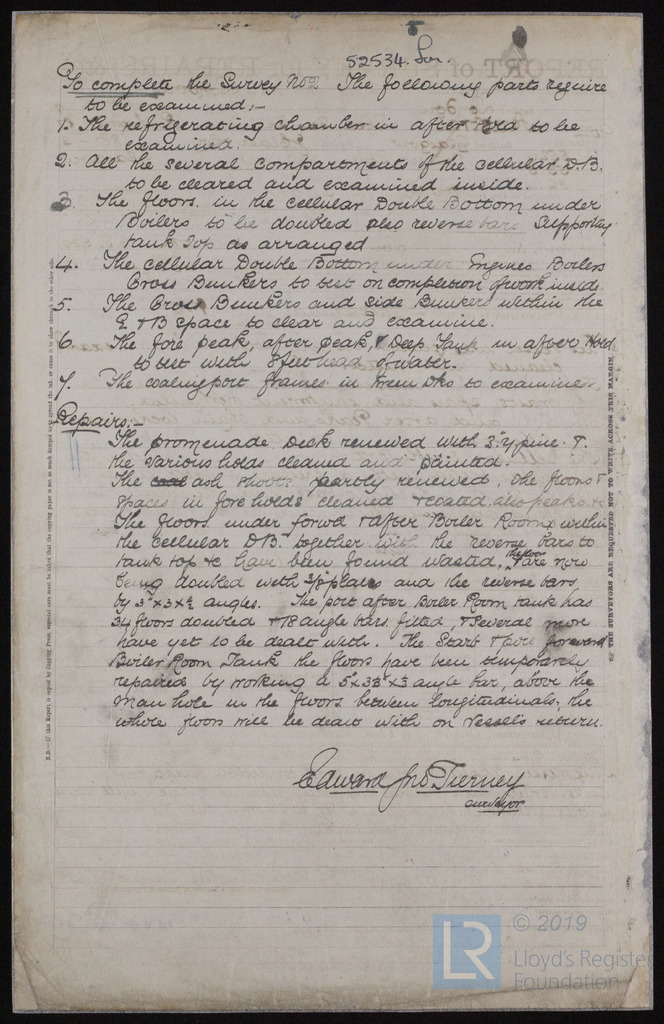 52534. Lon.
To complete the Survey No 2 The following parts require
to be examined:-
1. The refrigerating chamber in after Hold to be
examined.
2. All the several compartments of the cellular D.B.
to be cleared and examined inside.
3. The floors in the cellular Double Bottom under
Boilers to be doubled also reverse bars supporting
tank top as arranged
4. The cellular Double Bottom under Engines Boilers
Cross Bunkers to test on completion of work inside
5. The Cross Bunkers and side Bunkers within the
E & B space to clear and examine.
6. The fore peak, after peak, & Deep Tank in after Hold
to test with 8 feet head of water.
7. The coaling port frames in tween Dks to examine
Repairs:-
The promenade deck renewed with 3" y. pine. &
the various holds cleaned and painted.
The ash shoots partly renewed. The floors &
spaces in fore holds cleaned & coated. also peaks.
The floors under forwd & after Boiler Rooms within
the cellular D.B. together with the reverse bars to
tank top &c have been found wasted, the floors are now
being doubled with plates and the reverse bars
by 3" x 3 x angles. The port after Boiler Room tank has
34 floors doubled & 78 angle bars fitted, & several more
have yet to be dealt with. The Starb & port forward
Boiler Room Tank the floors have been temporarily
repaired by working a 5" x angle bar, above the
man hole in the floors between longitudinals, the
whole floors will be dealt with on vessel's return.
Edward Jno Tierney
surveyor
THE SURVEYORS ARE REQUESTED NOT TO WRITE ACROSS THIS MARGIN.
LR
© 2019
Lloyd's Register
Foundation